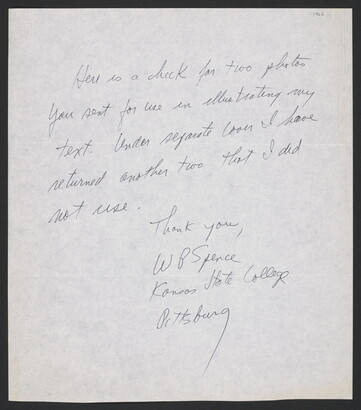 Here is a check for two photos
you sent for use in illustrating my
text. Under separate cover I have
returned another two that I did
not use.
Thank you,
W P Spence
Kansas State College
Pittsburg